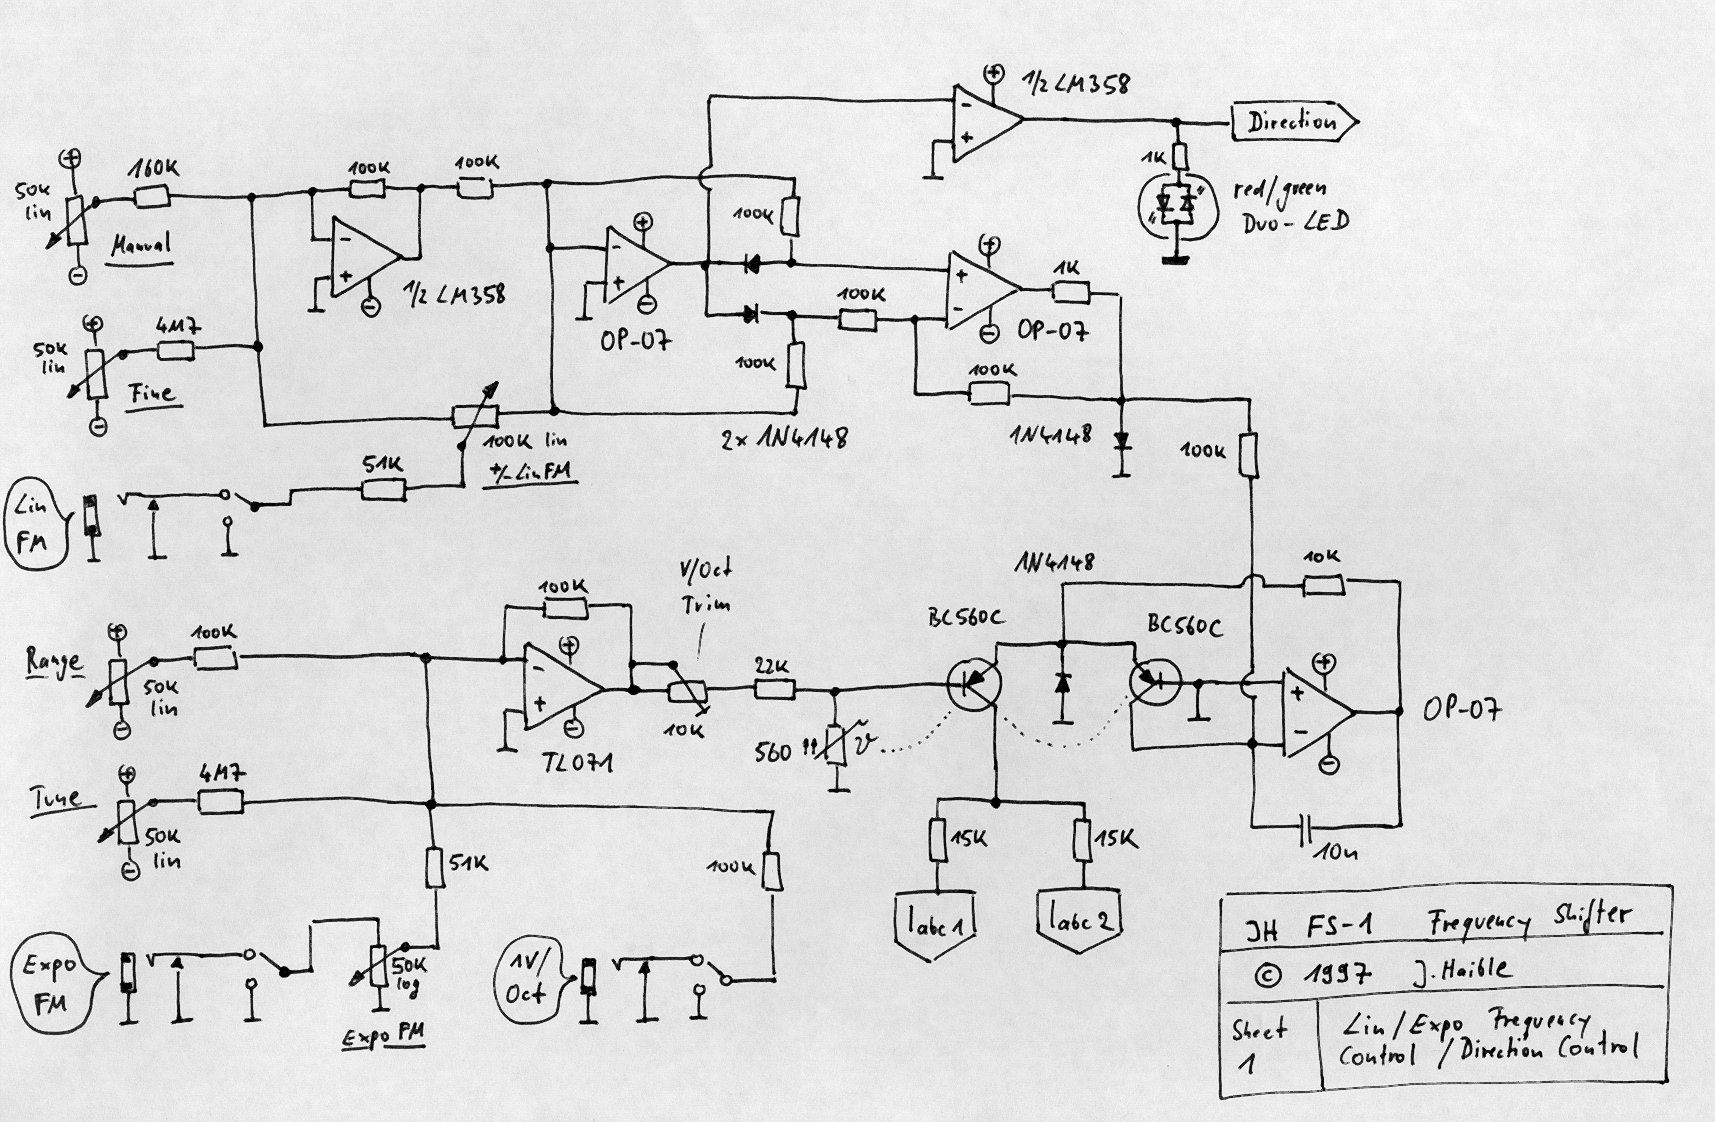 1/2 LM358
Direction
1K
red/green
Duo-LED
50K
lin
160K
Manual
100K
100K
1/2 LM358
100K
OP-07
1K
OP-07
100K
100K
100K
50K
lin
4M7
Fine
100K lin
+/- Lin FM
2x 1N4148
1N4148
100K
51K
Lin
FM
V/Oct
Trim
1N4148
10K
BC560C
BC560C
Range
100K
50K
lin
100K
TL071
10K
22K
560
ϑ
OP-07
10n
Tune
4M7
50K
lin
51K
100K
15K
15K
Iabc1
Iabc2
Expo
FM
50K
log
Expo FM
1V/
Oct
JH FS-1 Frequency Shifter
© 1997 J. Haible
Sheet
1
Lin/Expo Frequency
Control / Direction Control